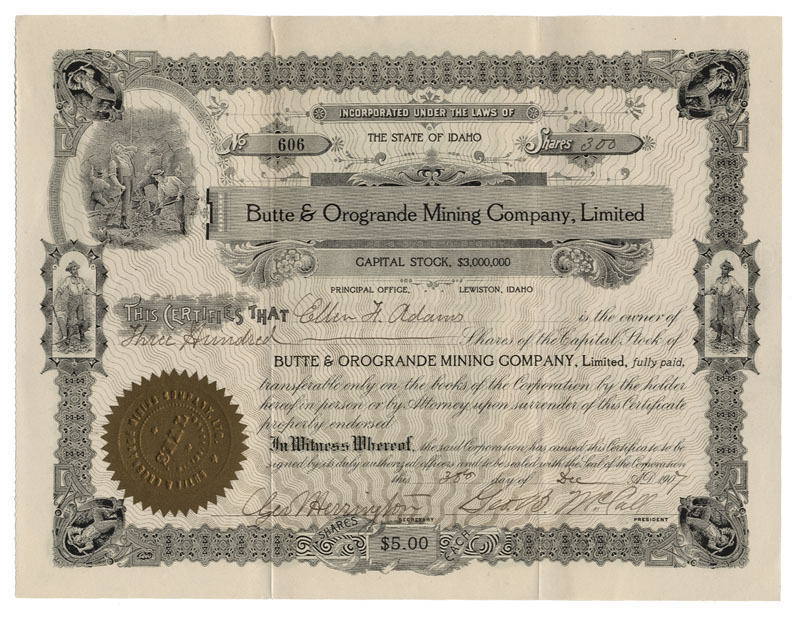 INCORPORATED UNDER THE LAWS OF
THE STATE OF IDAHO
No 606
Shares 300
Butte & Orogrande Mining Company, Limited
CAPITAL STOCK, $3,000,000
PRINCIPAL OFFICE, LEWISTON, IDAHO
THIS CERTIFIES THAT Ellen F. Adams is the owner of
Three Hundred Shares of the Capital Stock of
BUTTE & OROGRANDE MINING COMPANY, Limited, fully paid,
transferable only on the books of the Corporation by the holder
hereof in person or by Attorney, upon surrender of this Certificate
properly endorsed.
In Witness Whereof, the said Corporation has caused this Certificate to be
signed by its duly authorized officers and to be sealed with the Seal of the Corporation
this 30th day of Dec A.D. 1907
Geo Herrington Geo. B. McCall
SECRETARY PRESIDENT
SHARES $5.00 EACH
SEAL